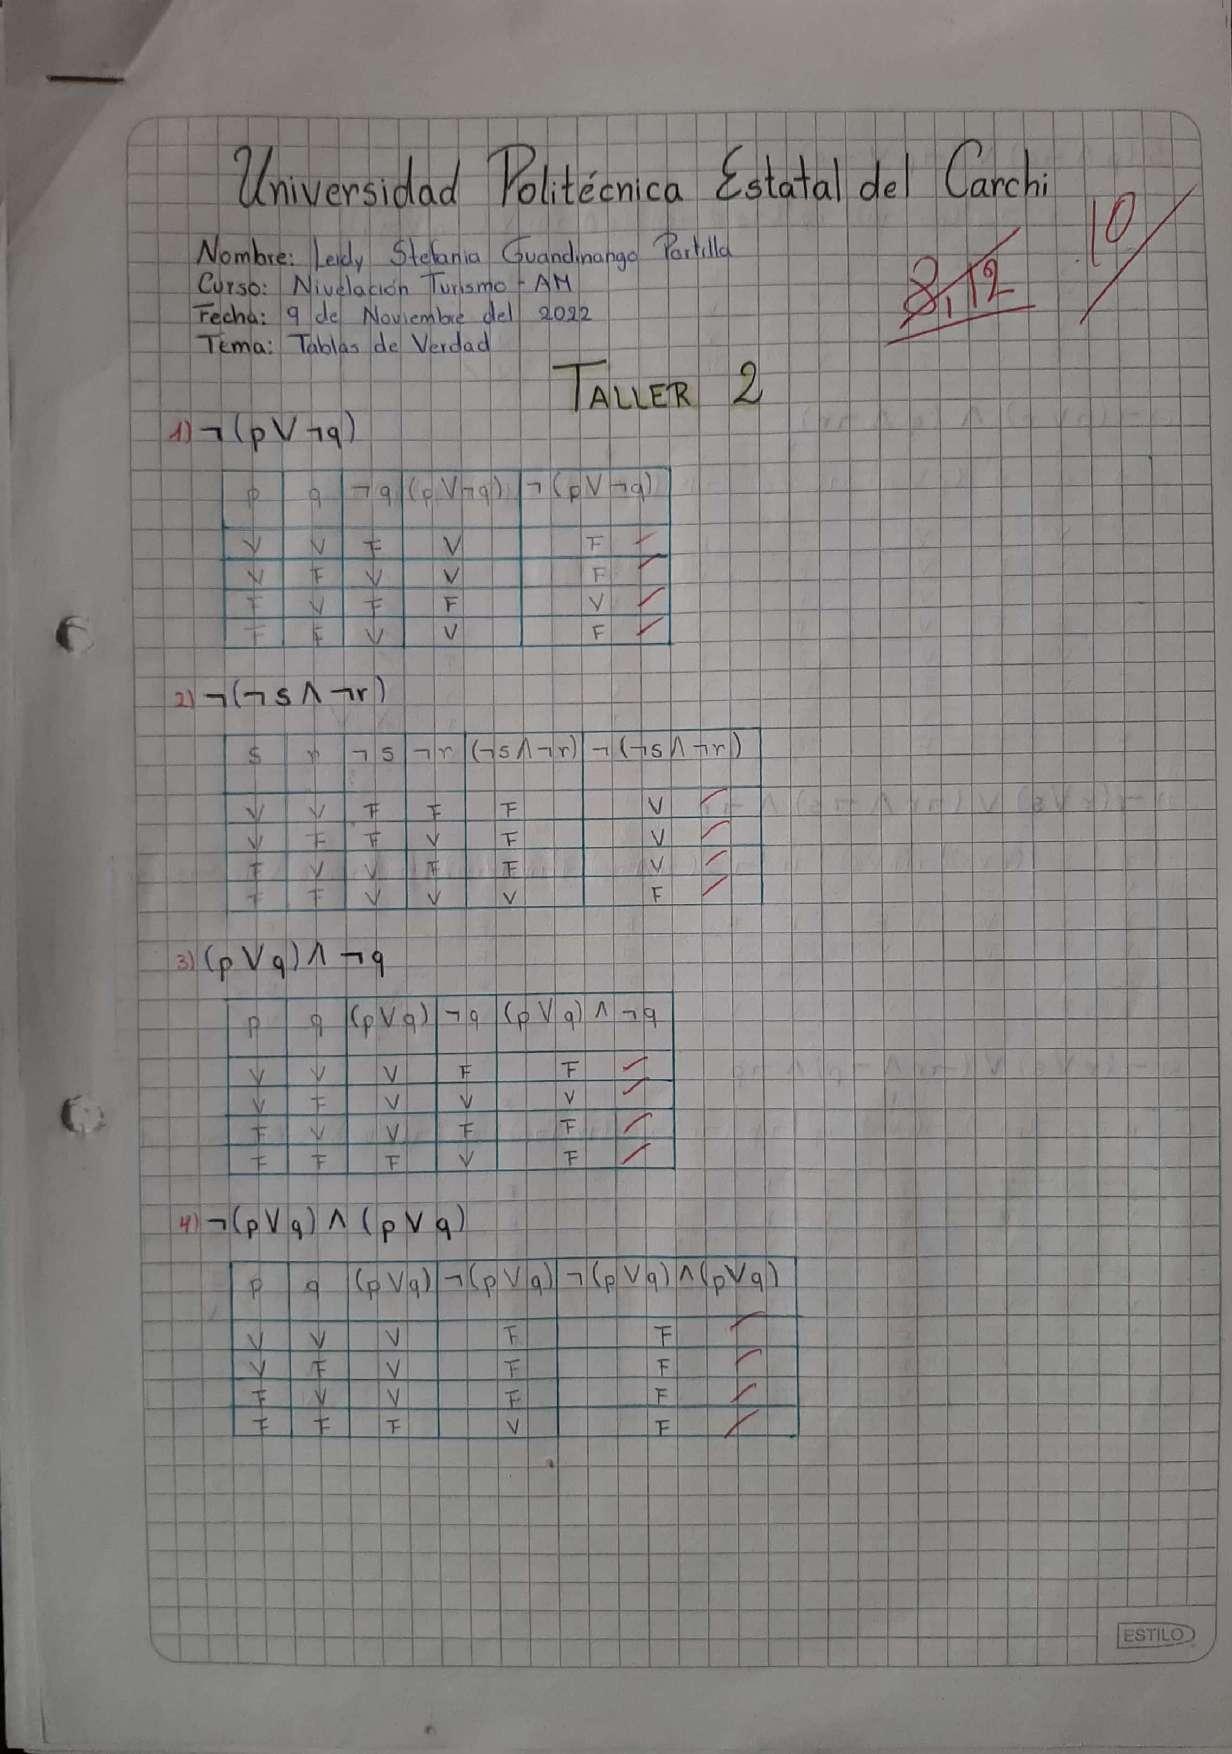 Universidad Politécnica Estatal del Carchi
Nombre: Leidy Stefania Guandinango Portilla
Curso: Nivelación Turismo - AM
Fecha: 9 de Noviembre del 2022
Tema: Tablas de Verdad
8,12
10
TALLER 2
1) ¬(p ∨ ¬q)
p q ¬q (p ∨ ¬q) ¬(p ∨ ¬q)
V V F V F
V F V V F
F V F F V
F F V V F
2) ¬(¬s ∧ ¬r)
s r ¬s ¬r (¬s ∧ ¬r) ¬(¬s ∧ ¬r)
V V F F F V
V F F V F V
F V V F F V
F F V V V F
3) (p ∨ q) ∧ ¬q
p q (p ∨ q) ¬q (p ∨ q) ∧ ¬q
V V V F F
V F V V V
F V V F F
F F F V F
4) ¬(p ∨ q) ∧ (p ∨ q)
p q (p ∨ q) ¬(p ∨ q) ¬(p ∨ q) ∧ (p ∨ q)
V V V F F
V F V F F
F V V F F
F F F V F
ESTILO